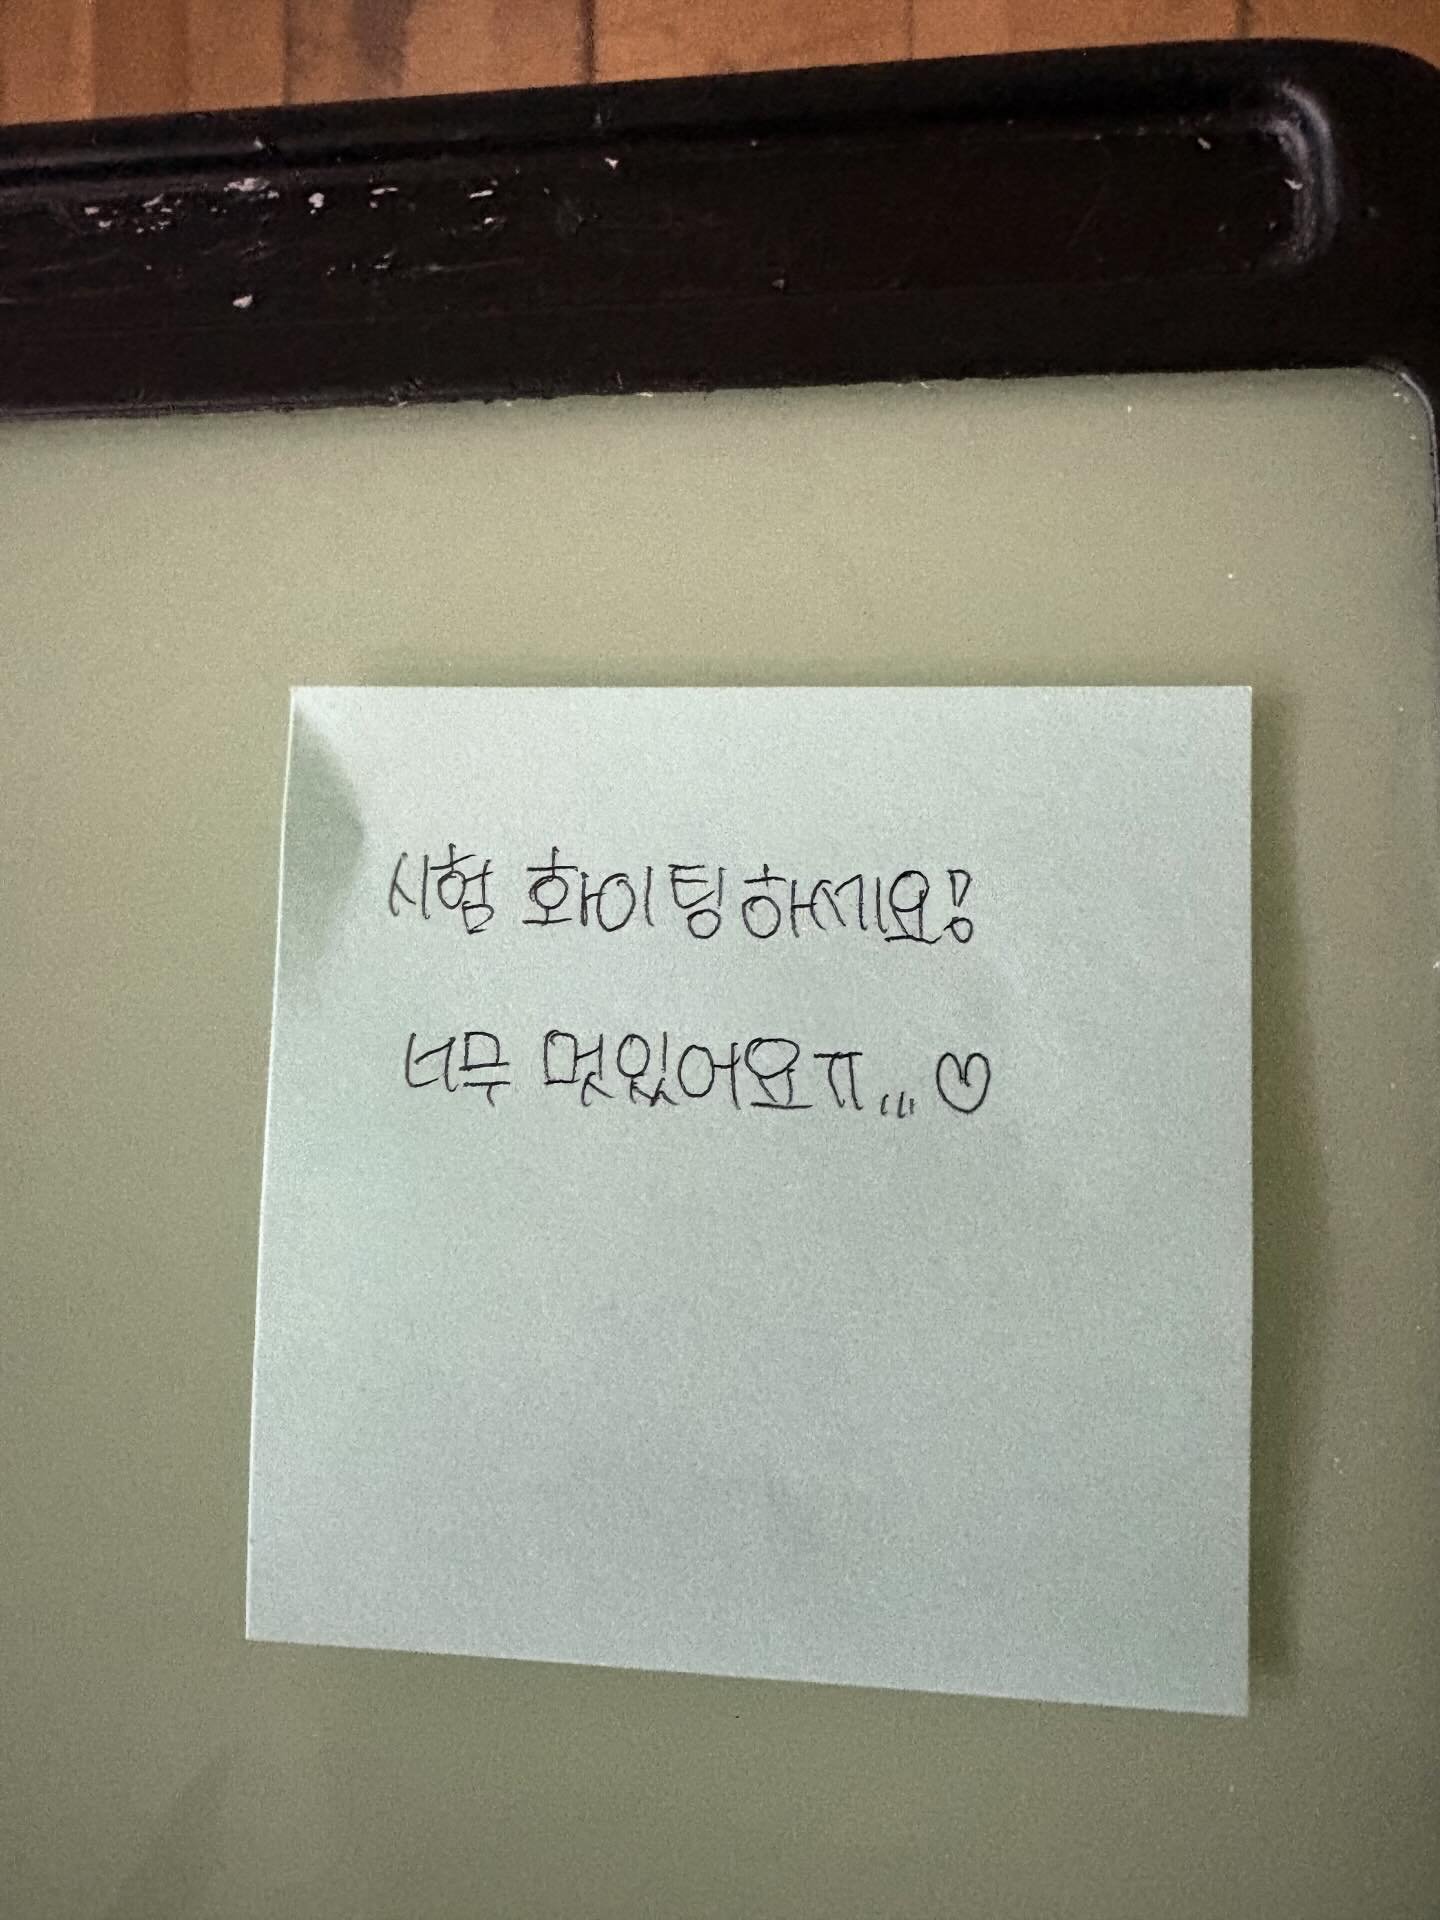 시험 화이팅하세요!
너무 멋있어요ㅠ... ♡